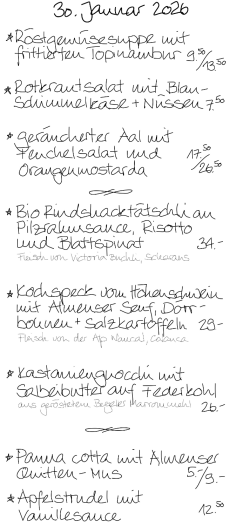 30. Januar 2026
* Röstgemüsesuppe mit
frittierten Topinambur 9.50/13.50
* Rotkrautsalat mit Blau-
schimmelkäse + Nüssen 7.50
* geräucherter Aal mit
Fenchelsalat und 17.50
Orangenmostarda /26.50
* Bio Rindshacktätschli an
Pilzrahmsauce, Risotto
und Blattspinat 34.-
Fleisch von Victoria
* Kochspeck vom Hohenschwein
mit Almenser Senf, Dörr-
bohnen + Salzkartoffeln 29.-
Fleisch von der Alp
* Kastaniengnocchi mit
Salbeibutter auf Federkohl
aus geröstetem Marronimehl 26.-
* Panna cotta mit Almenser
Quitten-Mus 5.-/9.-
* Apfelstrudel mit
Vanillesauce 12.50